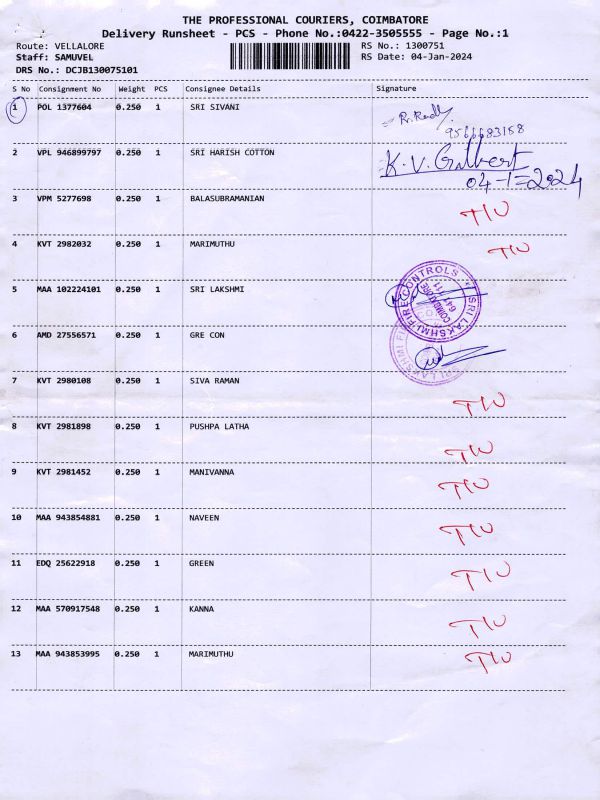 THE PROFESSIONAL COURIERS, COIMBATORE
Delivery Runsheet - PCS - Phone No.:0422-3505555 - Page No.:1
Route: VELLALORE
RS No.: 1300751
Staff: SAMUVEL
RS Date: 04-Jan-2024
DRS No.: DCJB130075101
S No Consignment No Weight PCS Consignee Details Signature
1 POL 1377604 0.250 1 SRI SIVANI
9566683158
2 VPL 946899797 0.250 1 SRI HARISH COTTON K.V. Gilbert
04-1=2024
3 VPM 5277698 0.250 1 BALASUBRAMANIAN TIU
4 KVT 2982032 0.250 1 MARIMUTHU TIU
5 MAA 102224101 0.250 1 SRI LAKSHMI
SRI LAKSHMI FIRE CONTROLS
COIMBATORE
6 AMD 27556571 0.250 1 GRE CON
SRI LAKSHMI FI
7 KVT 2980108 0.250 1 SIVA RAMAN TIU
8 KVT 2981898 0.250 1 PUSHPA LATHA TIU
9 KVT 2981452 0.250 1 MANIVANNA TIU
10 MAA 943854881 0.250 1 NAVEEN TIU
11 EDQ 25622918 0.250 1 GREEN TIU
12 MAA 570917548 0.250 1 KANNA TIU
13 MAA 943853995 0.250 1 MARIMUTHU TIU